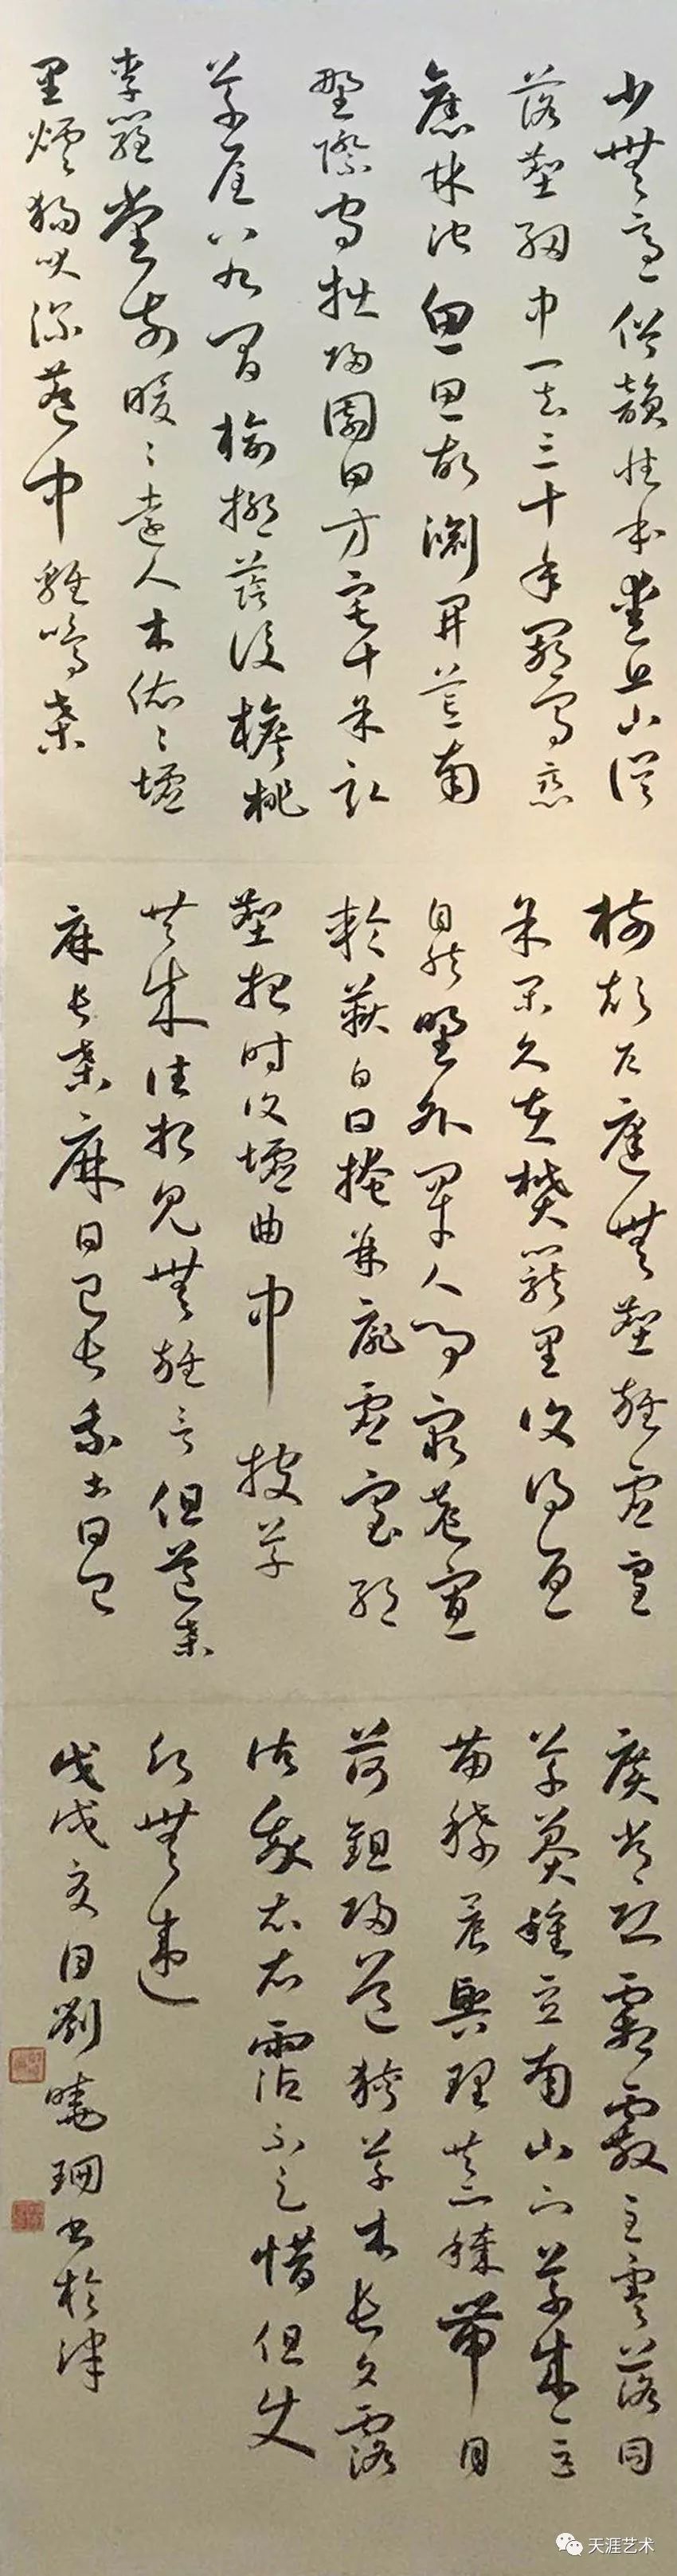 少無適俗韻性本愛丘山誤
落塵網中一去三十年羈鳥戀
舊林池魚思故淵開荒南
野際守拙歸園田方宅十余畝
草屋八九間榆柳蔭後檐桃
李羅堂前曖〻遠人村依〻墟
里煙狗吠深巷中雞鳴桑
樹顛戶庭無塵雜虛室
余閒久在樊籠里復得返
自然野外罕人事窮巷寡
輪鞅白日掩荊扉虛室絕
塵想時復墟曲中披草
共來往相見無雜言但道桑
麻長桑麻日已長我土日已
廣常恐霜霰至零落同
草莽種豆南山下草盛豆
苗稀晨興理荒穢帶月
荷鋤歸道狹草木長夕露
沾我衣衣霑不足惜但使
無違
戊戌夏日劉曉珊書於津
天涯艺术